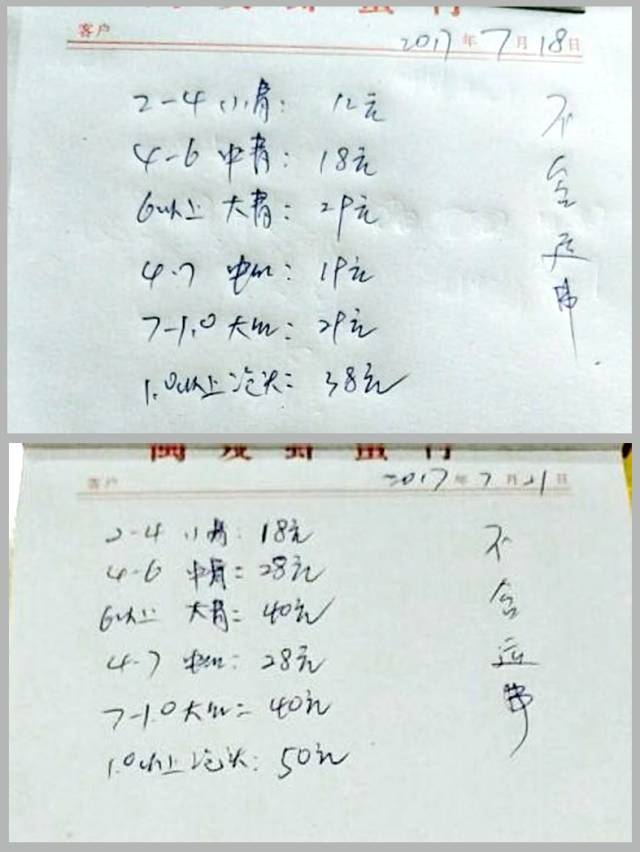 客户 2017年7月18日
2-4 小膏: 12元
4-6 中膏: 18元
6以上 大膏: 29元
4-7 中肉: 19元
7-1.0 大肉: 29元
1.0以上 头: 38元
不含运费
客户 2017年7月21日
2-4 小膏: 18元
4-6 中膏: 28元
6以上 大膏: 40元
4-7 中肉: 28元
7-1.0 大肉: 40元
1.0以上 头: 50元
不含运费